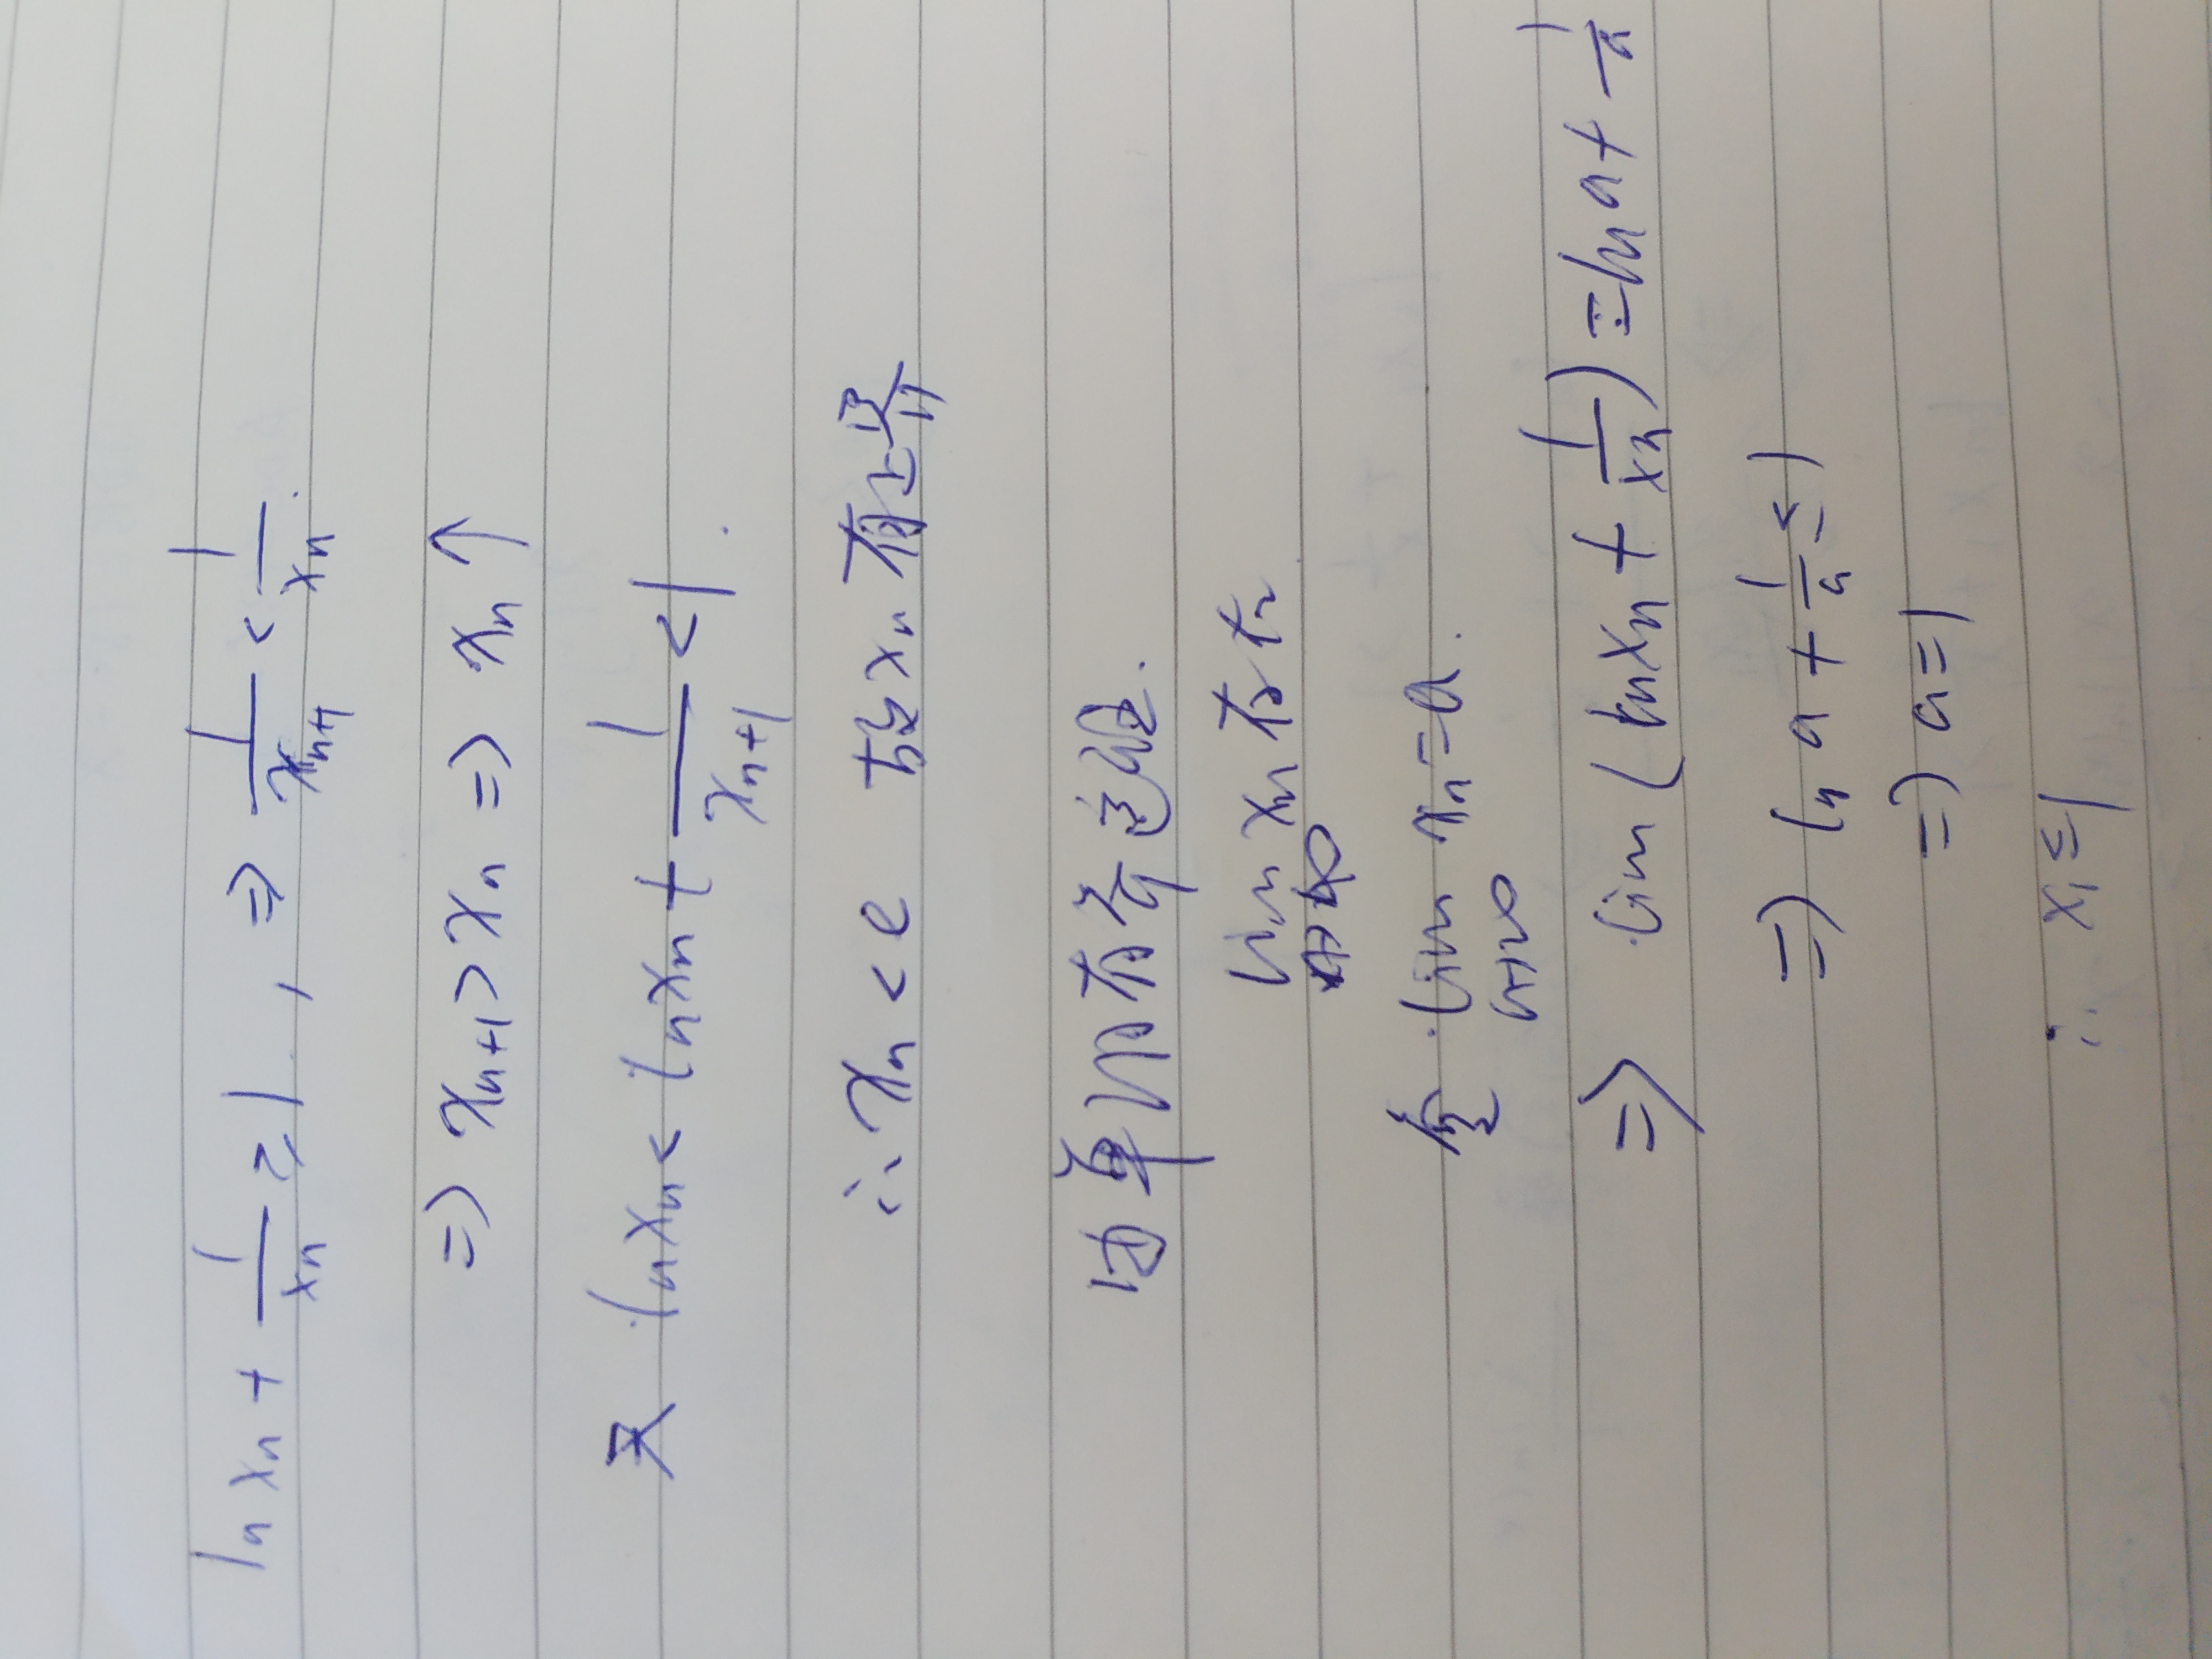 ln xn + 1/xn ≥ 1, ⇒ 1/xn+1 < 1/xn.
⇒ xn+1 > xn ⇒ xn ↑
又 ln xn < ln xn + 1/xn+1 < 1.
∴ xn < e 故 xn 有上界
由单调有界
lim xn 存在
n→∞
令 lim xn = a.
n→∞
⇒ lim (ln xn + 1/xn) = ln a + 1/a
⇒ ln a + 1/a ≤ 1
⇒ a = 1
∴ x1 ≤ 1